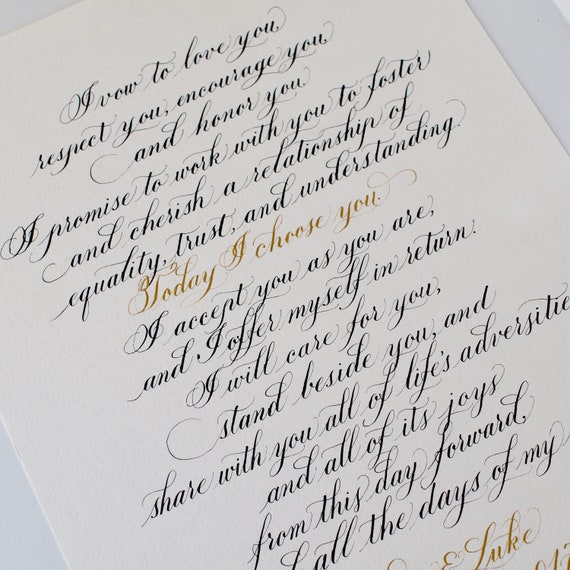 I vow to love you,
respect you, encourage you,
and honor you.
I promise to work with you to foster
and cherish a relationship of
equality, trust, and understanding.
Today I choose you.
I accept you as you are,
and I offer myself in return.
I will care for you,
stand beside you, and
share with you all of life's adversitie
and all of its joys
from this day forward,
all the days of my
& Luke